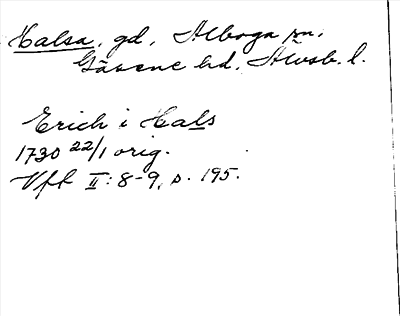 Halsa, gd, Alboga sn,
Gäsene hd, Älvsb. l.
Erich i Hals
1730 22/1 orig.
Vfl II:8-9, s. 195.